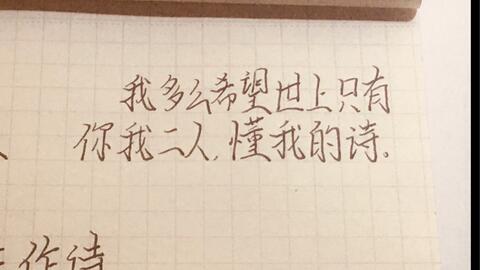 我多么希望世上只有
你我二人,懂我的诗。
作诗